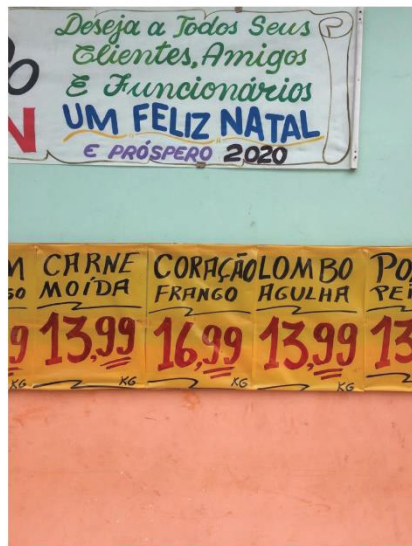 Deseja a Todos Seus
Clientes, Amigos
E Funcionários
UM FELIZ NATAL
E PRÓSPERO 2020
CARNE
MOÍDA
13,99
KG
CORAÇÃO
FRANGO
16,99
KG
LOMBO
AGULHA
13,99
KG
KG